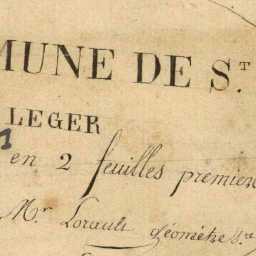 MUNE DE ST.
LEGER
en 2 feuilles premier
Mr. Lorault géomètre